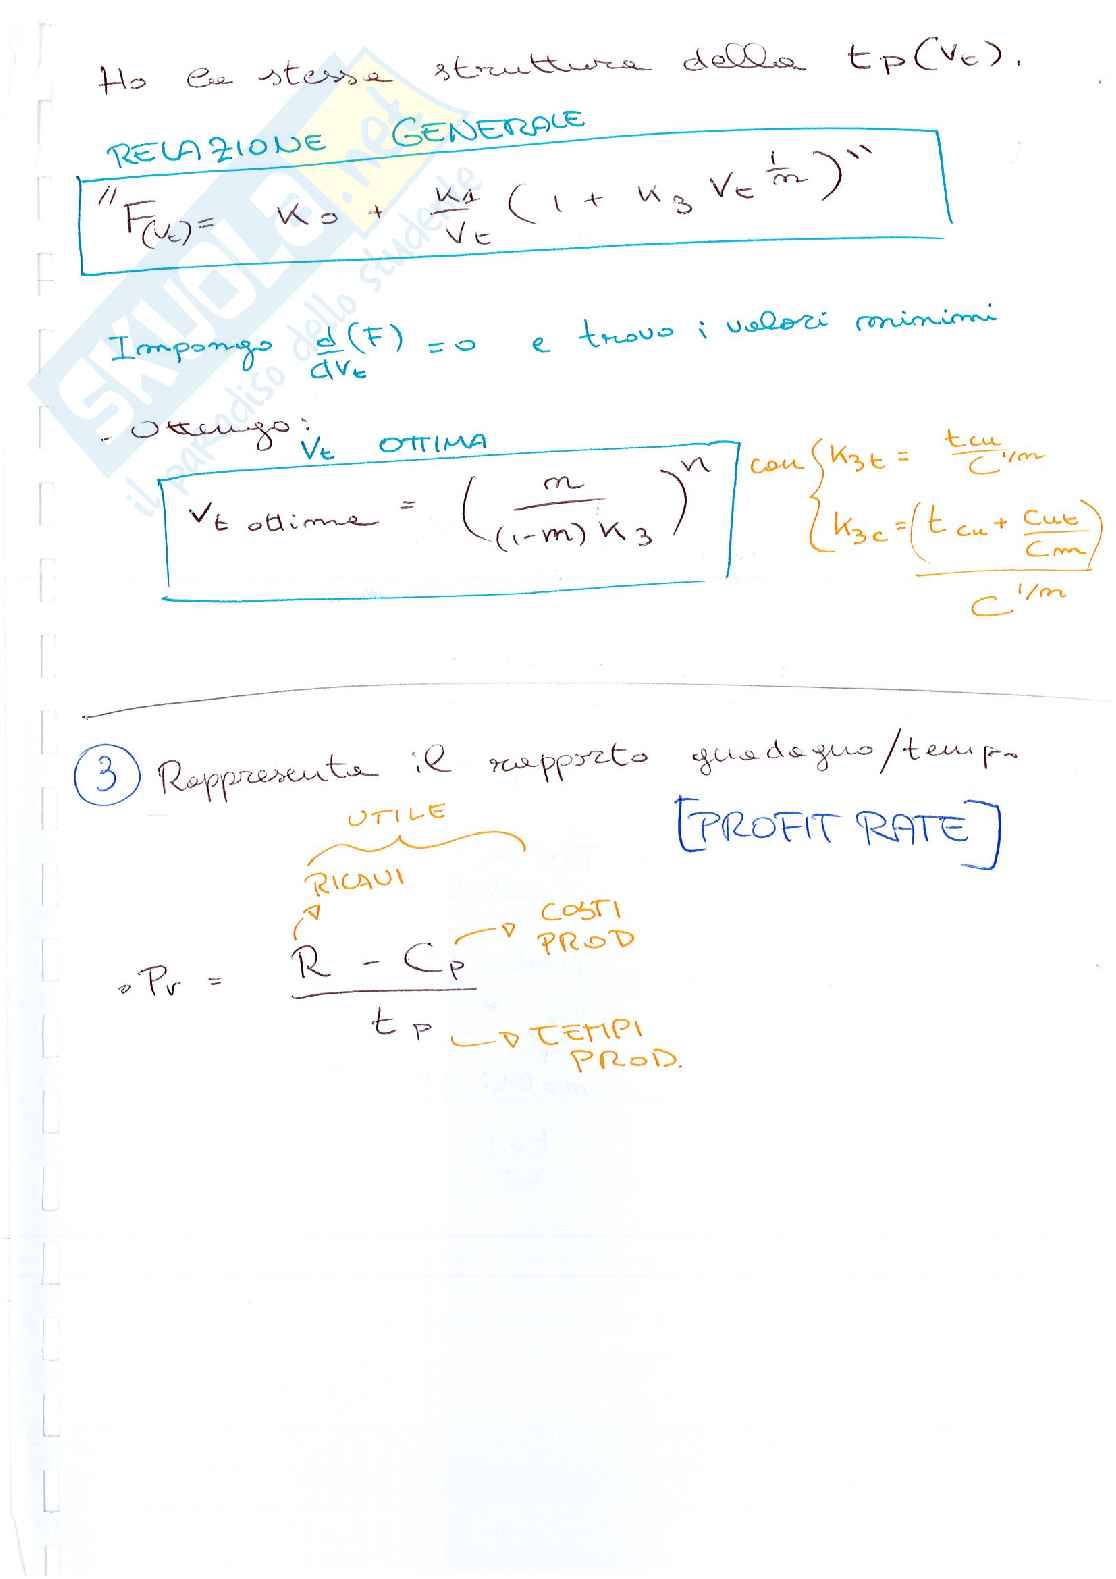 Ho la stessa struttura della tp(Vt).
RELAZIONE GENERALE
"F(Vt) = K0 + K1/Vt (1 + K3 Vt^1/n)"
Impongo d/dVt (F) = 0 e trovo i valori minimi
. Ottengo:
Vt OTTIMA
Vt ottima = (n/((1-n) K3))^n con { K3t = tcu/C^1/n
K3c = (tcu + Cut/Cm)/C^1/n
3 Rappresenta il rapporto guadagno/tempo
[PROFIT RATE]
UTILE
RICAVI
COSTI PROD
• Pr = (R - Cp)/tp
TEMPI PROD.
SKUOLA.net
il paradiso dello studente